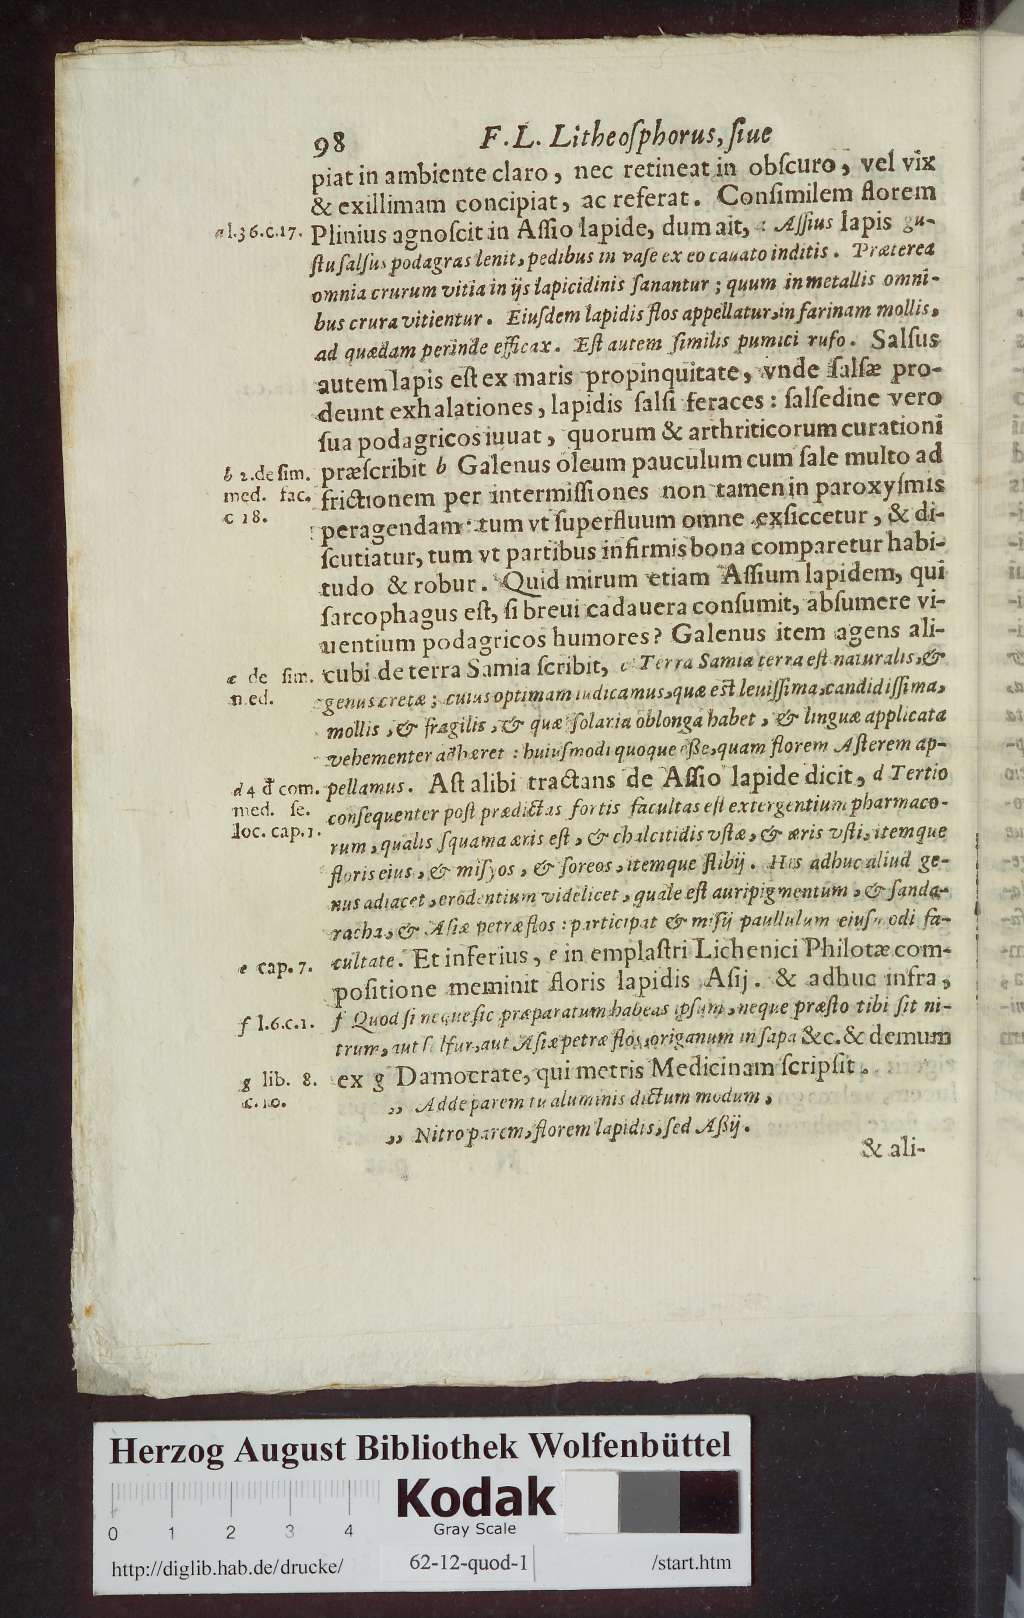 98 F. L. Litheoſphorus, ſiue
piat in ambiente claro, nec retineat in obſcuro, vel vix
& exillimam concipiat, ac referat. Conſimilem florem
a l.36.c.17. Plinius agnoſcit in Aſſio lapide, dum ait, a Aſſius lapis gu-
ſtu ſalſus podagras lenit, pedibus in vaſe ex eo cauato inditis. Præterea
omnia crurum vitia in ijs lapicidinis ſanantur; quum in metallis omni-
bus crura vitientur. Eiuſdem lapidis flos appellatur, in farinam mollis,
ad quædam perinde efficax. Eſt autem ſimilis pumici rufo. Salſus
autem lapis eſt ex maris propinquitate, vnde ſalſæ pro-
deunt exhalationes, lapidis ſalſi feraces: ſalſedine vero
ſua podagricos iuuat, quorum & arthriticorum curationi
b 2.de ſim. præſcribit b Galenus oleum pauculum cum ſale multo ad
med. fac. frictionem per intermiſſiones non tamen in paroxyſmis
c 18. peragendam: tum vt ſuperfluum omne exſiccetur, & di-
ſcutiatur, tum vt partibus infirmis bona comparetur habi-
tudo & robur. Quid mirum etiam Aſſium lapidem, qui
ſarcophagus eſt, ſi breui cadauera conſumit, abſumere vi-
uentium podagricos humores? Galenus item agens ali-
c de ſim. cubi de terra Samia ſcribit, c Terra Samia terra eſt naturalis, &
med. genus cretæ; cuius optimam iudicamus, quæ eſt leuiſſima, candidiſſima,
mollis, & fragilis, & quæ ſolaria oblonga habet, & linguæ applicata
vehementer adhæret: huiuſmodi quoque eſſe, quam florem Aſterem ap-
d 4 d com. pellamus. Aſt alibi tractans de Aſſio lapide dicit, d Tertio
med. ſe. conſequenter poſt prædictas fortis facultas eſt extergentium pharmaco-
loc. cap.1. rum, qualis ſquama æris eſt, & chalcitidis vſtæ, & æris vſti, itemque
floris eius, & miſyos, & ſoreos, itemque ſtibij. His adhuc aliud ge-
nus adiacet, erodentium videlicet, quale eſt auripigmentum, & ſanda-
racha, & Aſiæ petræ flos: participat & miſij paullulum eiuſmodi fa-
e cap.7. cultate. Et inferius, e in emplaſtri Lichenici Philotæ com-
poſitione meminit floris lapidis Aſij. & adhuc infra,
f l.6.c.1. f Quod ſi neque ſic præparatum habeas ipſum, neque præſto tibi ſit ni-
trum, aut ſulfur, aut Aſiæ petræ flos, origanum in ſapa &c. & demum
g lib. 8. ex g Damocrate, qui metris Medicinam ſcripſit.
c.10. ,, Adde parem tu aluminis dictum modum,
,, Nitro parem, florem lapidis, ſed Aßij.
& ali-
Herzog August Bibliothek Wolfenbüttel
Kodak
Gray Scale
0 1 2 3 4
http://diglib.hab.de/drucke/ 62-12-quod-1 /start.htm